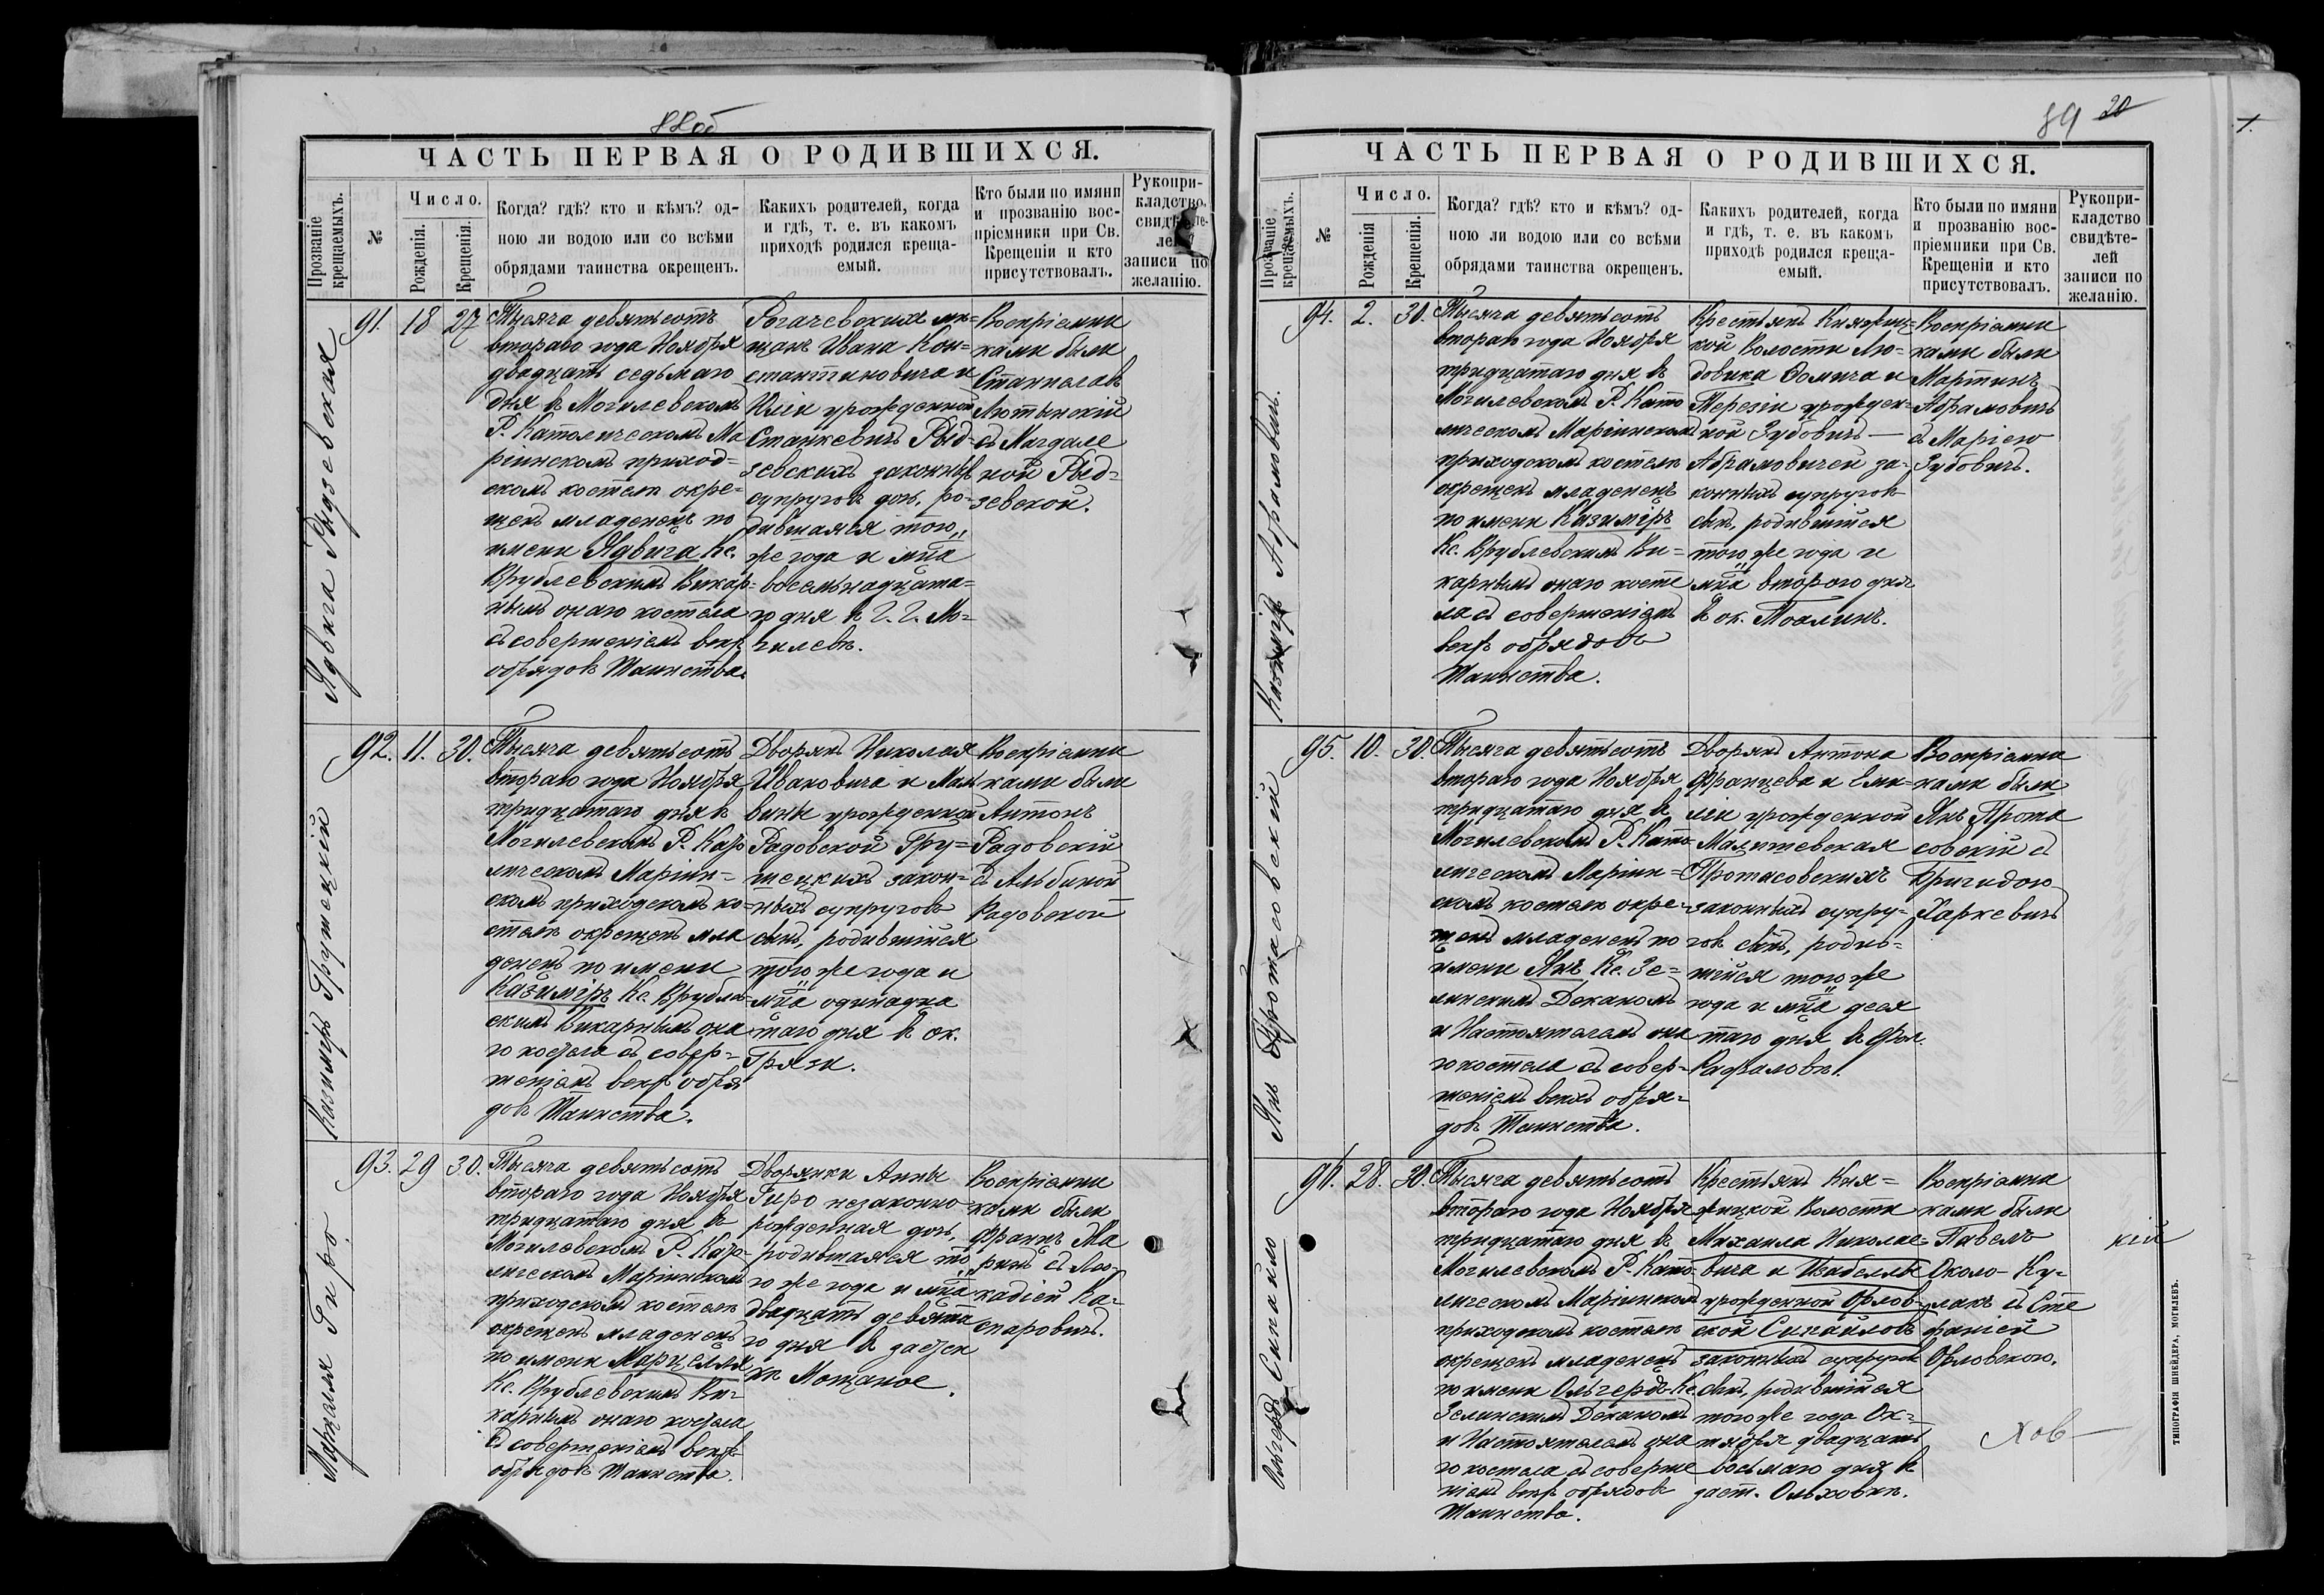 88об
ЧАСТЬ ПЕРВАЯ О РОДИВШИХСЯ.
Прозваніе крещаемыхъ.
№
Число.
Рожденія.
Крещенія.
Когда? гдѣ? кто и кѣмъ? од-
ною ли водою или со всѣми
обрядами таинства окрещенъ.
Какихъ родителей, когда
и гдѣ, т. е. въ какомъ
приходѣ родился креща-
емый.
Кто были по имяни
и прозванію вос-
пріемники при Св.
Крещеніи и кто
присутствовалъ.
Рукопри-
кладство
свидѣте-
лей
записи по
желанію.
Ядвига Рыдзевская
91.
18
27
Тысяча девятьсотъ
втораго года Ноября
двадцать седьмаго
дня въ Могилевскомъ
Р. Католическомъ Ма
ріинскомъ приход=
скомъ костелѣ окре=
щенъ младенецъ по
имени Ядвига Кс.
Врублевскимъ Викар=
нымъ онаго костела
съ совершеніемъ всѣхъ
обрядовъ Таинства.
Рогачевскихъ мѣ=
щанъ Ивана Кон=
стантиновича и
Юліи урожденной
Станкевичъ Рыд=
зевскихъ законныхъ
супруговъ дочь, ро-
дившаяся того
же года и мца
восемьнадцата=
го дня въ Г. Г. Мо=
гилевѣ.
Воспріемни
ками были
Станиславъ
Лютынскій
съ Магдале
ной Рыд=
зевской.
Казиміръ Грушецкій
92.
11.
30.
Тысяча девятьсотъ
втораго года Ноября
тридцатаго дня въ
Могилевскомъ Р. Като
лическомъ Маріин=
скомъ приходскомъ ко=
стелѣ окрещенъ мла
денецъ по имени
Казиміръ Кс. Врублев
скимъ Викарнымъ она
го костела съ совер=
шеніемъ всѣхъ обря
довъ Таинства.
Дворянъ Николая
Ивановича и Маль
вины урожденной
Радовской Гру=
шецкихъ закон=
ныхъ супруговъ
сынъ, родившійся
того же года и
мца одинадца
таго дня въ ок.
Грязи.
Воспріемни
ками были
Антонъ
Радовскій
съ Альбиной
Радовской
Марцеля Гиро.
93.
29
30.
Тысяча девятьсотъ
втораго года Ноября
тридцатаго дня въ
Могилевскомъ Р. Като-
лическомъ Маріинскомъ
приходскомъ костелѣ
окрещенъ младенецъ
по имени Марцелля
Кс. Врублевскимъ Ви-
карнымъ онаго костела
съ совершеніемъ всѣхъ
обрядовъ Таинства.
Дворянки Анны
Гиро незаконно-
рожденная дочь,
родившаяся то
го же года и мца
двадцать девята
го дня въ застѣн
кѣ Мощаное.
Воспріемни
ками были
Францъ Ма
ринъ съ Лю-
кадіей Ка-
спаровичъ.
89
20
ЧАСТЬ ПЕРВАЯ О РОДИВШИХСЯ.
Прозваніе крещаемыхъ.
№
Число.
Рожденія
Крещенія.
Когда? гдѣ? кто и кѣмъ? од-
ною ли водою или со всѣми
обрядами таинства окрещенъ.
Какихъ родителей, когда
и гдѣ, т. е. въ какомъ
приходѣ родился креща-
емый.
Кто были по имяни
и прозванію вос-
пріемники при Св.
Крещеніи и кто
присутствовалъ.
Рукопри-
кладство
свидѣте-
лей
записи по
желанію.
Казиміръ Абрамовичъ.
94.
2.
30.
Тысяча девятьсотъ
втораго года Ноября
тридцатаго дня въ
Могилевскомъ Р. Като
лическомъ Маріинскомъ
приходскомъ костелѣ
окрещенъ младенецъ
по имени Казиміръ
Кс. Врублевскимъ Ви=
карнымъ онаго косте
ла съ совершеніемъ
всѣхъ обрядовъ
Таинства.
Крестьянъ Княжиц=
кой Волости Лю=
довика Фомича и
Терезіи урожден=
ной Зубовичъ —
Абрамовичей за-
конныхъ супруговъ
сынъ, родившійся
того же года и
мца второго дня
въ ок. Тоалинъ.
Воспріемни
ками были
Мартинъ
Абрамовичъ
съ Маріею
Зубовичъ.
Янъ Протасовскій
95.
10.
30.
Тысяча девятьсотъ
втораго года Ноября
тридцатаго дня въ
Могилевскомъ Р. Като
лическомъ Маріин=
скомъ костелѣ окре-
щенъ младенецъ по
имени Янъ Кс. Зе=
линскимъ Деканомъ
и Настоятелемъ она
го костела съ совер=
шеніемъ всѣхъ обря=
довъ Таинства.
Дворянъ Антона
Францева и Еми=
ліи урожденной
Малишевская
Протасовскихъ
законныхъ супру=
говъ сынъ, родив=
шійся того же
года и мца деся
таго дня въ фол.
Рафаловѣ.
Воспріемни
ками были
Янъ Прота
совскій съ
Бригидою
Харкевичъ
Ольгердъ Сипайло
96.
28.
30.
Тысяча девятьсотъ
втораго года Ноября
тридцатаго дня въ
Могилевскомъ Р. Като-
лическомъ Маріинскомъ
приходскомъ костелѣ
окрещенъ младенецъ
по имени Ольгердъ Кс.
Зелинскимъ Деканомъ
и Настоятелемъ она
го костела съ соверше
ніемъ всѣхъ обрядовъ
Таинства.
Крестьянъ Кня=
жицкой Волости
Михаила Николае=
вича и Изабеллы
урожденной Орлов=
ской Сипайловъ
законныхъ супруговъ
сынъ, родившійся
того же года Ок=
тября двадцать
восьмаго дня въ
заст. Ольховкѣ.
Воспріемни
ками были
Павелъ
Около-Ку-
лакъ съ Сте
фаніей
Орловскою.
кій
ТИПОГРАФІЯ ШНЕЙДЕРА, МОГИЛЕВЪ.